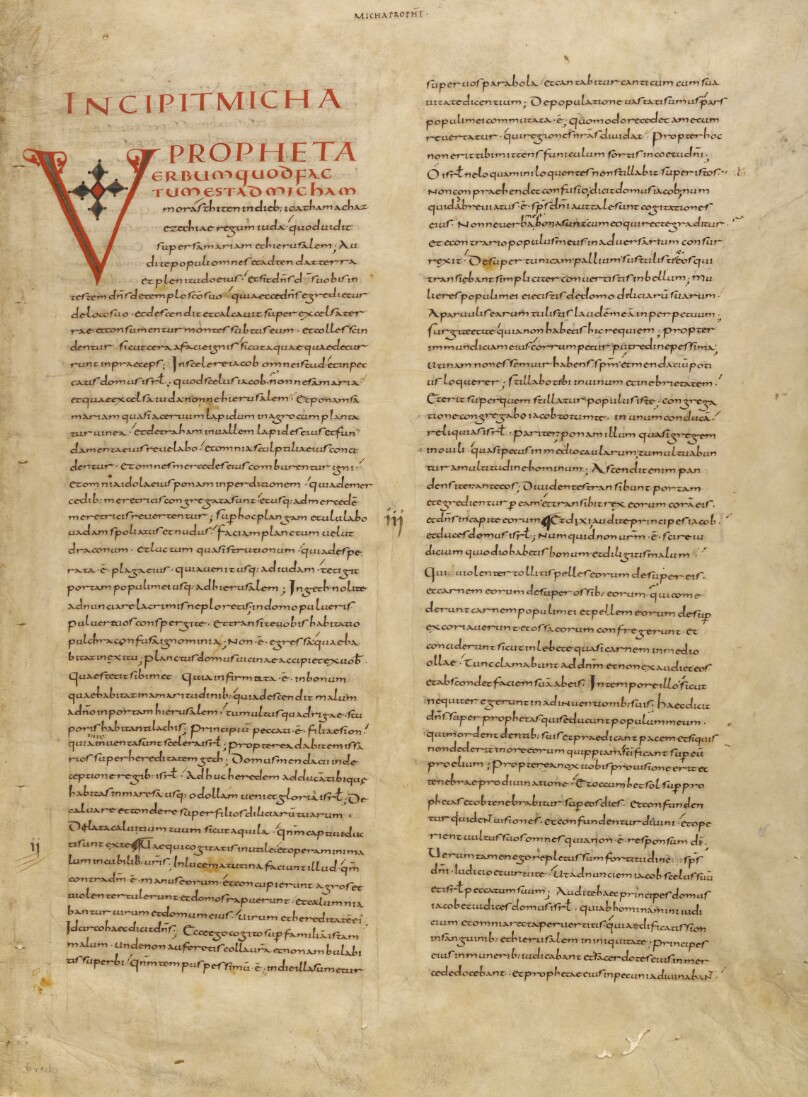 MICHA PROPHET·
INCIPIT MICHA
PROPHETA
VERBUM QUOD FAC
TUM EST AD MICHAM
morasthiten in dieb; ioatham achaz
ezechiae regum iuda· quod uidit
super samariam et hierusalem; Au
dite populi omnes et adtendat terra
et plenitudo eius· et sit dn̄s d̄s uobis in
testem dn̄s de templo sc̄o suo· quia ecce dn̄s egredietur
de loco suo· et descendit et calcauit super excelsa ter
rae et consumentur montes subtus eum· et colles scin
dentur· sicut cera a facie ignis sicut aquae quae decur
runt in praeceps; In scelere iacob omne istud et in pec
catis domus isrl̄· quod scelus iacob· nonne samaria·
et quae excelsa iudae nonne hierusalem; Et ponam sa
mariam quasi aceruum lapidum in agro cum planta
tur uinea· et detraham in uallem lapides eius et fun
damenta eius reuelabo· et omnia sculptilia eius conci
dentur· et omnes mercedes eius comburentur igni·
et omnia idola eius ponam in perditionem· quia de mer
cedib; meretricis congregata sunt· et usq; ad mercedē
meretricis reuertentur; Sup hoc plangam et ululabo
uadam spoliatus et nudus· faciam planctum uelut
draconum· et luctum quasi strutionum· quia despe
rata· ē· plaga eius· quia uenit usq; ad iudam· tetigit
portam populi mei usq; ad hierusalem; In geth nolite
adnunciare lacrimis ne ploretis· in domo pulueris
puluere uos conspergite· et transite uobis habitatio
pulchra confusa ignominia; Non· ē· egressa quae ha
bitat in exitu; planctus domus uicinae accipiet ex uob·
quae stetit sibimet· Quia infirmata· ē· in bonum
quae habitat in amaritudinib; quia descendit malum
a dn̄o in portam hierusalem· tumultus quadrigae stu
poris habitanti lachis; Principiū peccati· ē· filiae sion·
quia in te inuenta sunt scelera isrl̄; propterea dabit emissa
rios super hereditatem geth; Domus mendacii in de
ceptione regib; isrl̄· Adhuc heredem adducā tibi quae
habitas in maresa usq; odollam ueniet gloria isrl̄; De
caluare et tondere super filios diliciarū tuarum·
Dilata caluitium tuum sicut aquila· qnm̄ captiui duc
ti sunt ex te Uae qui cogitatis inutile et operamini ma
lum in cubilib; uris̄· In luce matutina faciunt illud· qnm̄
contra dm̄· ē· manus eorum· et concupierunt agros et
uiolenter tulerunt et domos rapuerunt· et calumnia
bantur uirum et domum eius· uirum et hereditatē ei·
Idcirco haec dicit dn̄s; Ecce ego cogito sup familiā istam
malum· unde non auferetis colla urā· et non ambulabi
tis superbi· qnm̄ tempus pessimū· ē· in die illa sumetur
ij
super uos parabola· et cantabitur canticum cum sua
uitate dicentium; Depopulatione uastati sumus pars
populi mei commutata· ē; quomodo recedet a me cum
reuertatur· qui regiones nrās diuidat· Propter hoc
non erit tibi mittens funiculum sortis in coetu dn̄i·
O isrl̄ ne loquamini loquentes non stillabit super istos·
Non conprachendet confusio· dicit domus iacob; num
quid abbreuiatus· ē· sps̄ dn̄i aut tales sunt cogitationes
eius· Nonne uerba bona sunt cum eo qui recte graditur
et e contrario populus meus in aduersarium consur
rexit· Desuper tunica pallium sustulistis· et eos qui
transiebant simpliciter conuertistis in bellum; mu
lieres populi mei eiecistis de domo diliciarū suarum·
A paruulis earum tulistis laudem meā in perpetuum;
Surgite et ite quia non habetis hic requiem; propter
inmundiciam eius corrumpetur putredine pessima;
Utinam non essem uir habens spm̄· et mendaciū poti
us loquerer; Stillabo tibi in uinum et in ebrietatem·
Et erit super quem stillatur populus iste· congrega
tione congregabo iacob totum te· in unum conducā
reliquias isrl̄· pariter ponam illum quasi gregem
in ouili· quasi pecus in medio caularum; tumultuabun
tur a multitudine hominum; Ascendit enim pan
dens iter ante eos; Diuident et transibunt portam
et egredientur p eam· et transibit rex eorum corā eis·
et dn̄s in capite eorum Et dixi audite principes iacob·
iij
et duces domus isrl̄; Numquid non urm̄· ē· scire iu
dicium qui odio habetis bonum et diligitis malum·
Qui uiolenter tollitis pelles eorum desuper eis·
et carnem eorum desuper ossib; eorum· qui come
derunt carnem populi mei et pellem eorum desup
excoriauerunt et ossa eorum confregerunt· et
conciderunt sicut in lebete quasi carnem in medio
ollae· Tunc clamabunt ad dnm̄ et non exaudiet eos
et abscondet faciem suā ab eis· In tempore illo sicut
nequiter egerunt in adinuentionib; suis; haec dicit
dn̄s super prophetas qui seducunt populum meum·
qui mordent dentib; suis et praedicant pacem et si quis
non dederit in ore eorum quippiam sc̄ificant sup eū
proelium; Propterea nox uobis pro uisione erit et
tenebrae pro diuinatione· Et occumbet sol sup pro
phetas et obtenebrabitur sup eos dies· et confunden
tur qui uident uisiones· et confundentur diuini· et ope
rient uultus suos omnes quia non· ē· responsum dī·
Uerumtamen ego repletus sum fortitudine· sps̄
dn̄i· Iudicio et uirtute· Ut adnunciem iacob scelus suū
et isrl̄ peccatum suum; Audite haec principes domus
iacob et iudices domus isrl̄· qui abhominamini iudi
cium et omnia recta peruertitis· qui aedificatis sion
in sanguinib; et hierusalem in iniquitate; principes
eius in munerib; iudicabant· et sacerdotes eius in mer
cede docebant· et prophetae eius in pecunia diuinabant·